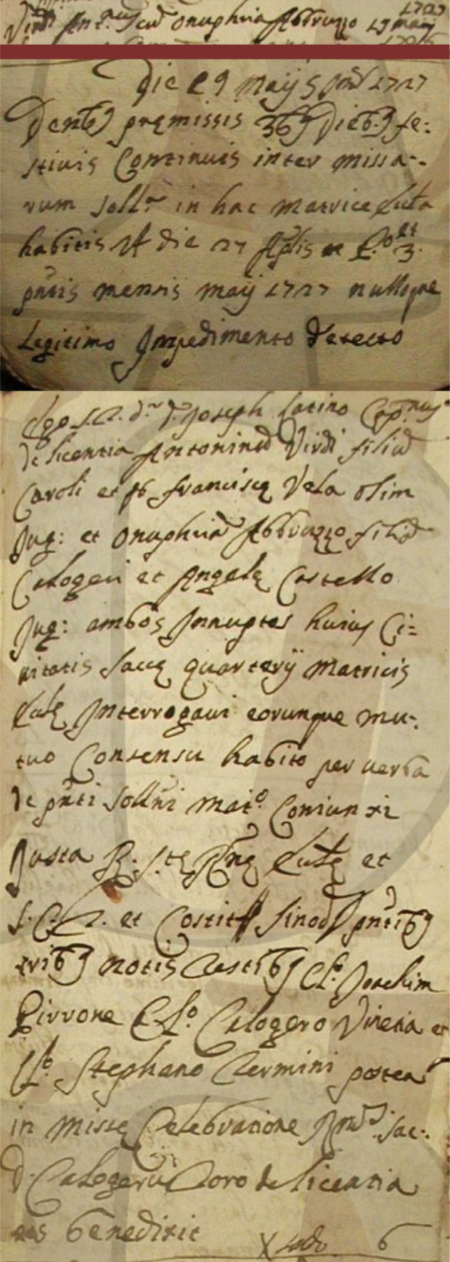 Virdi Ant.nus cum Onuphria Abbruzzo 29 may 1727
Die 29 Maij 5 Ind. 1727
Dentis premissis 3bg Diebg fe:
stivis Continuis inter missa-
rum soll.a in hac matrice Eccla
habitis Vt die 27 Aplis 3.
pntis mensis maij 1727 nulloque
Legitimo Impedimento detecto
Ego d. Joseph Latino
de licentia Antoninū Virdi filiū
Caroli et Francisce Vela olim
Jug: et Onuphriā Abbruzzo filiā
Calogeri et Angele Costello
Jug: ambos Innuptos huius Ci=
vitatis Sacce quarterij Matricis
Eccle Interrogavi eorumque mu-
tuo Consensu habito per verba
de pnti sollni mat.o Coniunxi
Juxta R. S.te Rne Eccle et
S. C. T. et Costit Sinod pntibg
tribg notis testibg Cl.o Joachim
Pirrone Cl.o Calogero Vinetia et
Cl.o Stephano Termini postea
in misse Celebratione Sac.
d. Calogerus Toro de licentia
eos benedixit
6